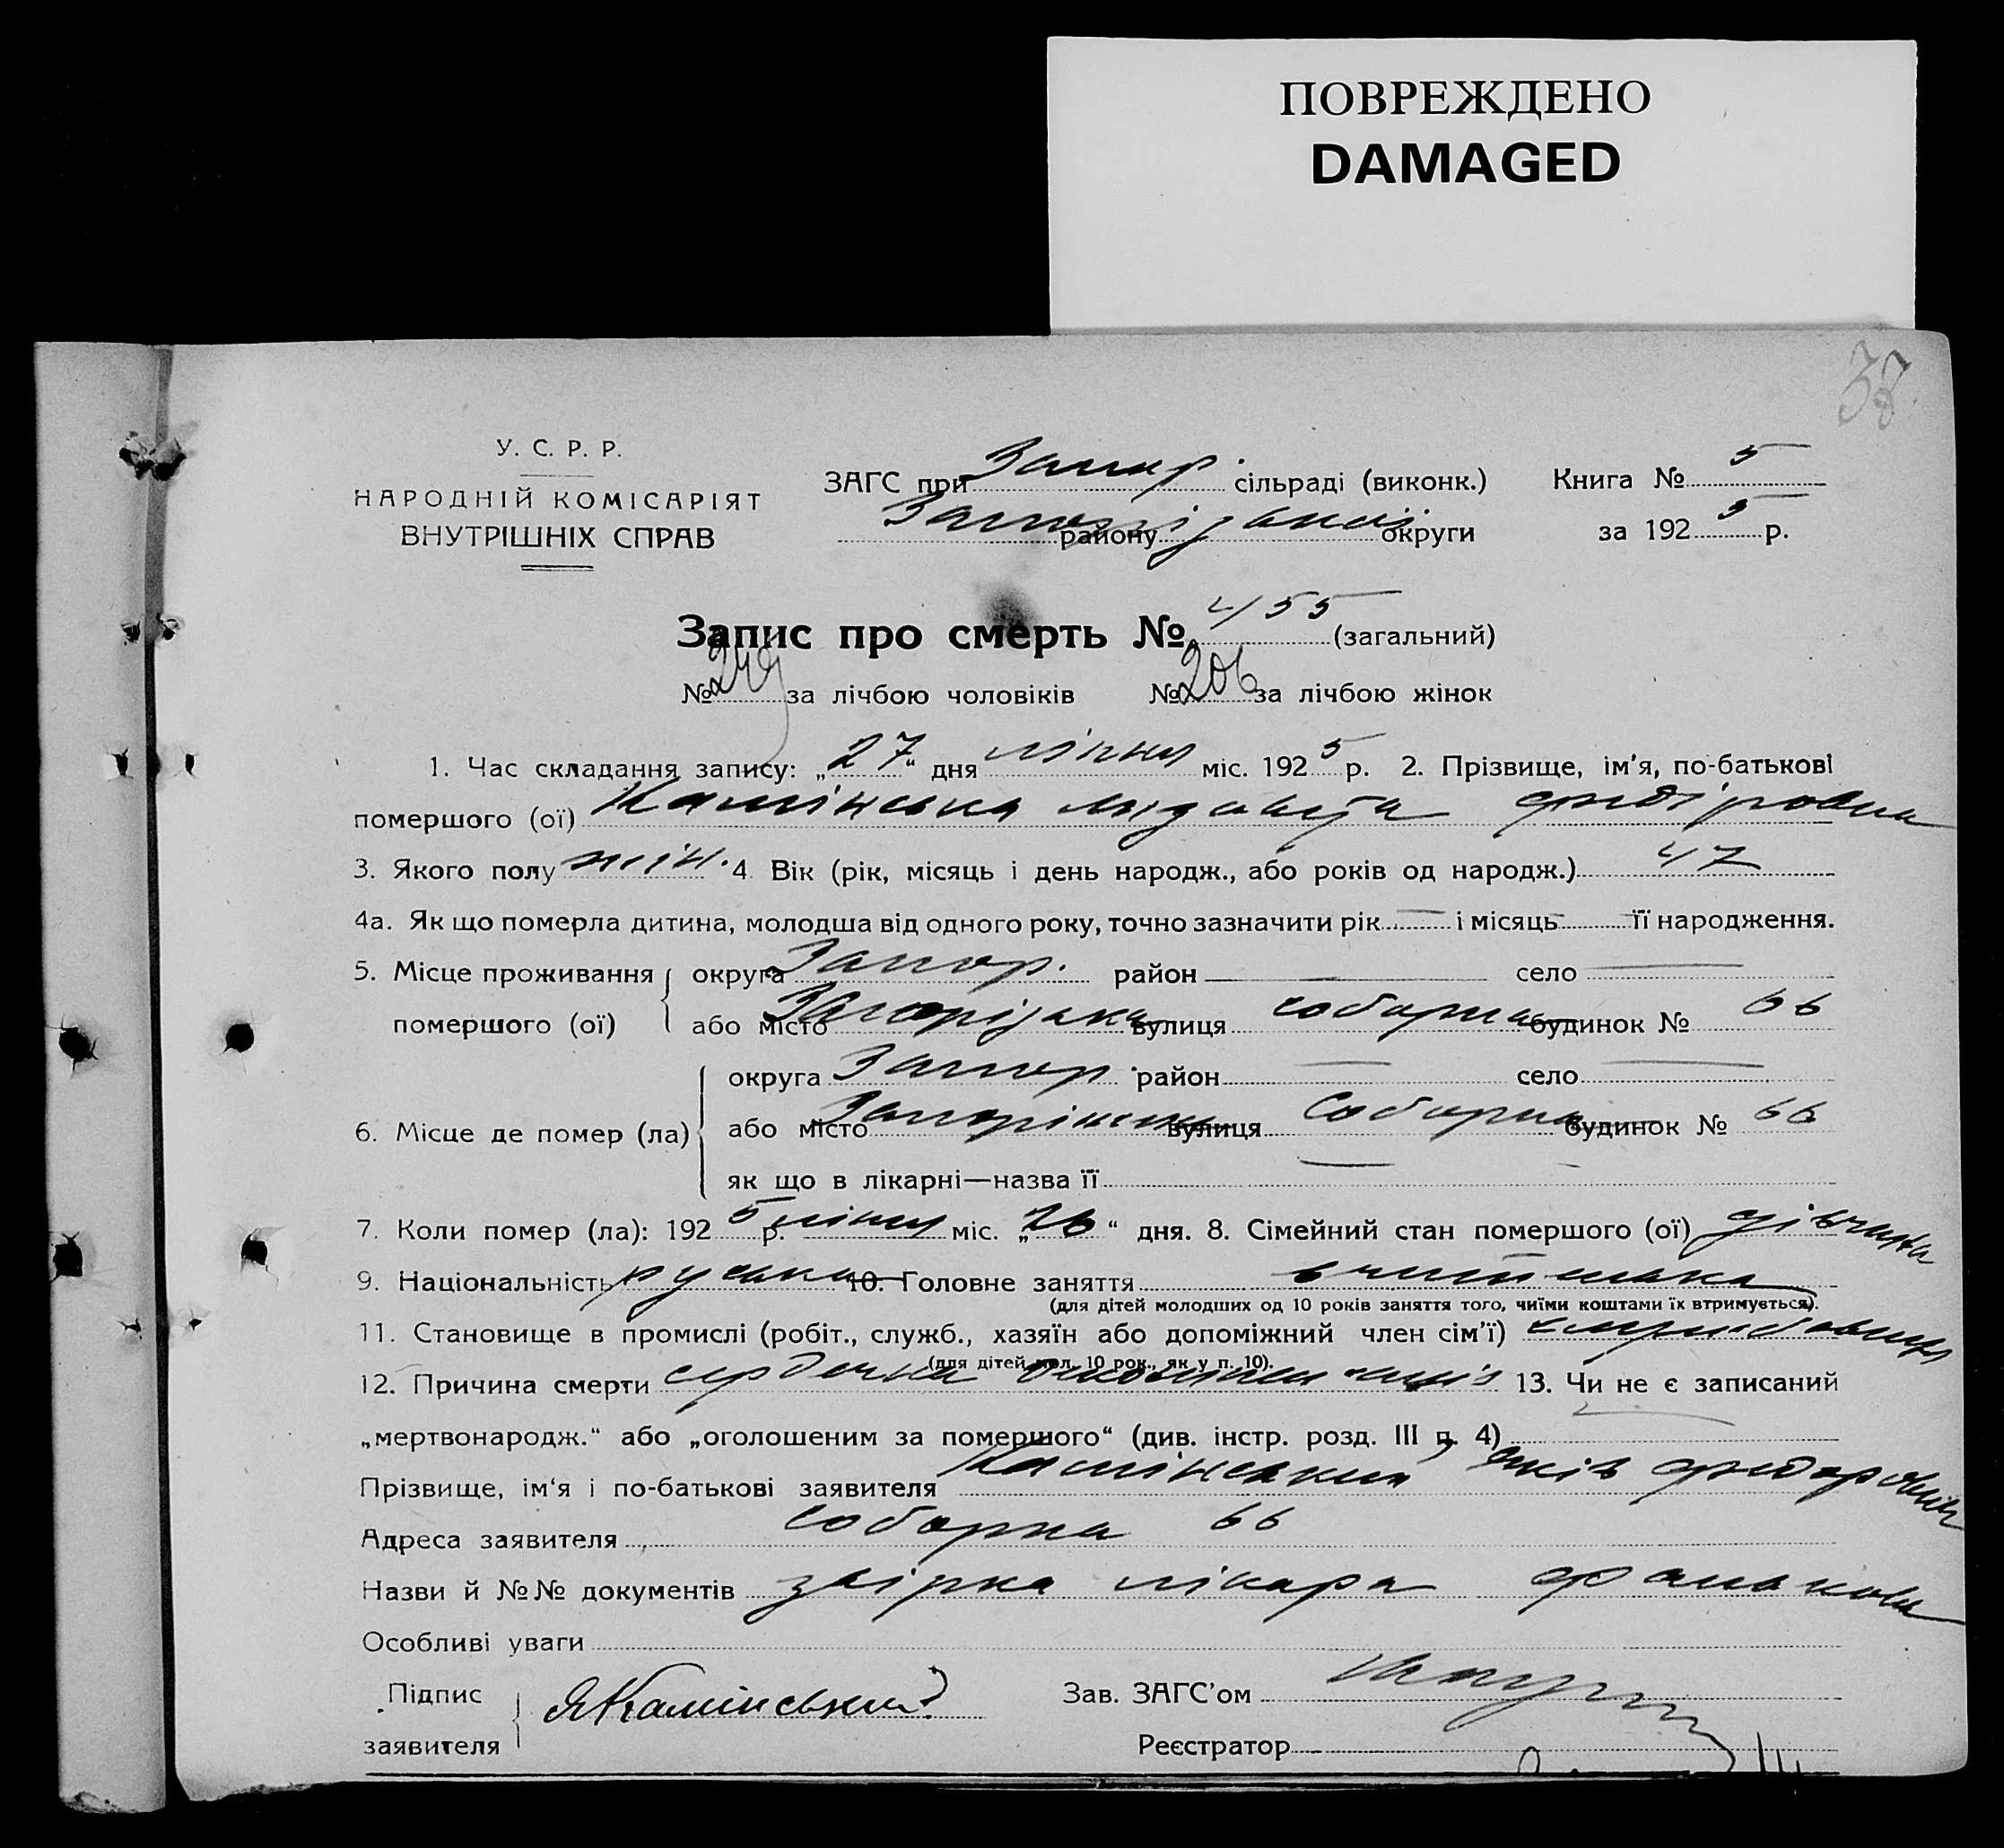 ПОВРЕЖДЕНО
DAMAGED
У. С. Р. Р.
НАРОДНІЙ КОМІСАРІЯТ
ВНУТРІШНІХ СПРАВ
ЗАГС при Запор. сільраді (виконк.)
Запорізької району округи
Книга № 5
за 1925 р.
Запис про смерть № 455 (загальний)
№ 249 за лічбою чоловіків № 206 за лічбою жінок
1. Час складання запису: „27“ дня липня міс. 1925 р. 2. Прізвище, ім’я, по-батькові
помершого (ої) Камінська
3. Якого полу жін. 4 Вік (рік, місяць і день народж., або років од народж.) 47
4а. Як що померла дитина, молодша від одного року, точно зазначити рік — і місяць — її народження.
5. Місце проживання округа Запор. район — село —
помершого (ої) або місто вулиця Соборна будинок № 66
округа Запор район — село —
6. Місце де помер (ла) або місто вулиця Соборна будинок № 66
як що в лікарні—назва її —
7. Коли помер (ла): 1925 р. липня міс. „26“ дня. 8. Сімейний стан помершого (ої) дівчина
9. Національність руська 10. Головне заняття вчителька
(для дітей молодших од 10 років заняття того, чиїми коштами їх втримується).
11. Становище в промислі (робіт., служб., хазяїн або допоміжний член сім’ї)
(для дітей мол. 10 рок., як у п. 10).
12. Причина смерти 13. Чи не є записаний
„мертвонародж.“ або „оголошеним за помершого“ (див. інстр. розд. III п. 4) —
Прізвище, ім‘я і по-батькові заявителя Камінський Яків
Адреса заявителя Соборна 66
Назви й №№ документів лікара
Особливі уваги
Підпис
заявителя
ЯКамінський
Зав. ЗАГС’ом
Реєстратор